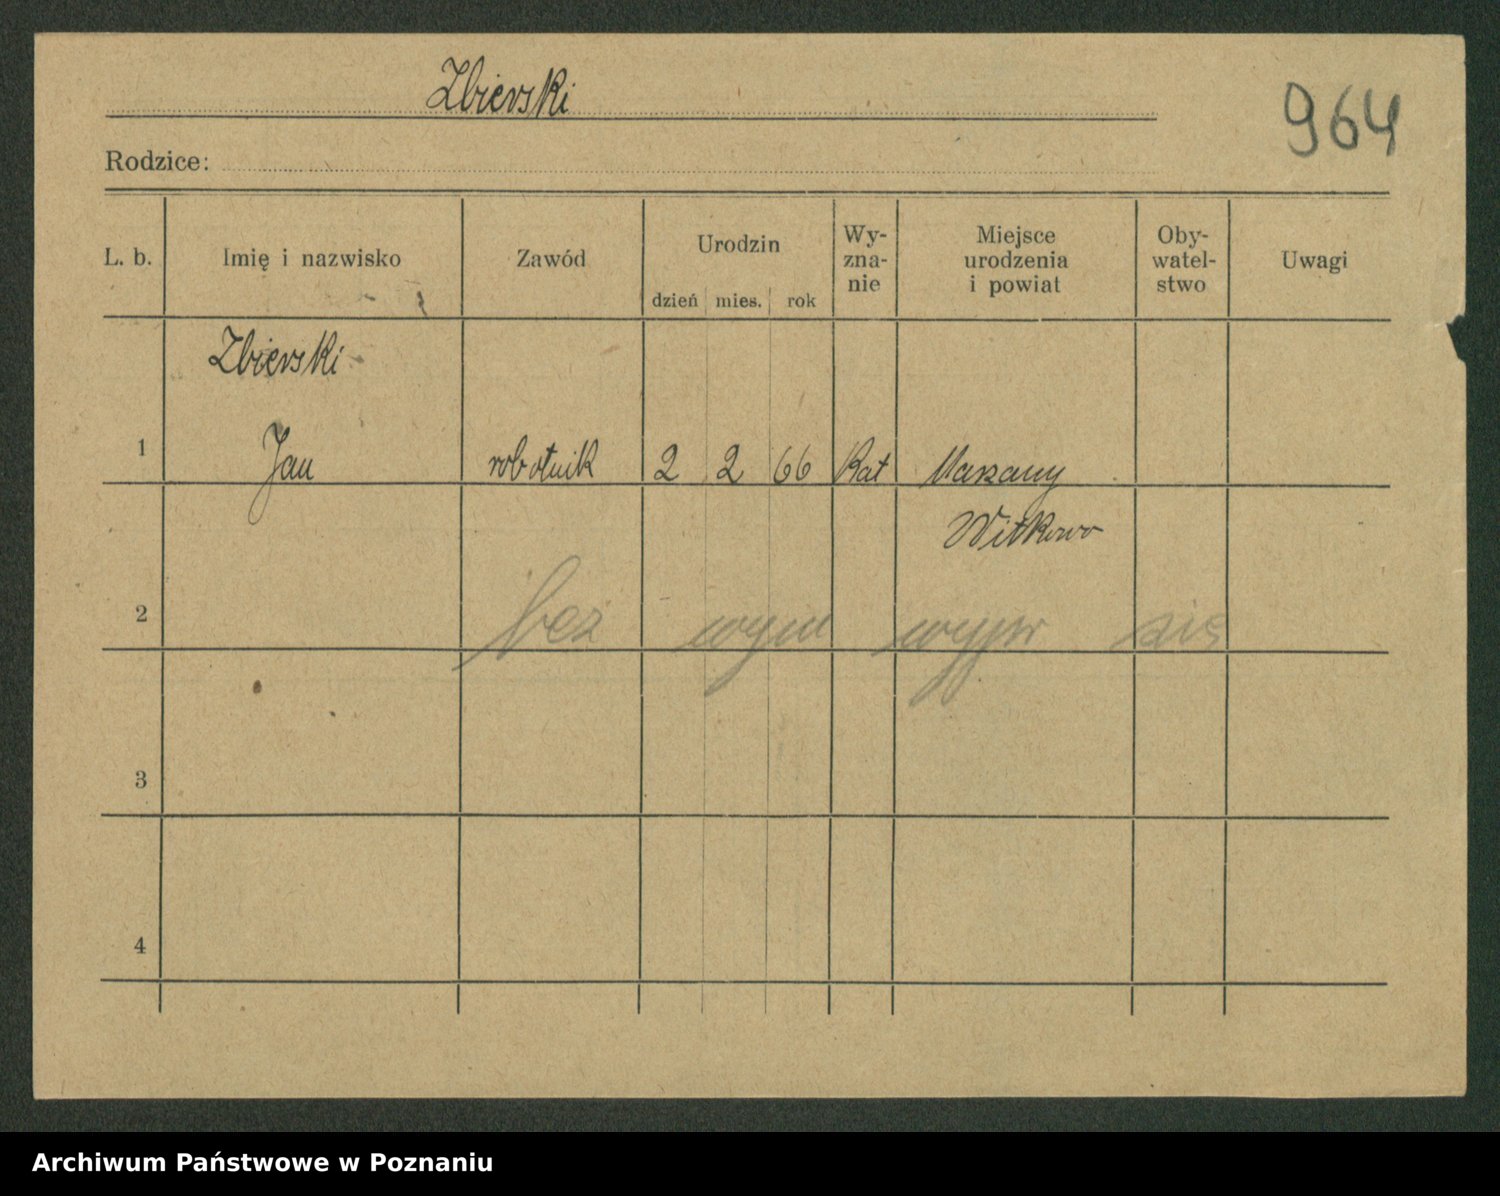 Zbierski
964
Rodzice:
L. b. Imię i nazwisko Zawód Urodzin dzień mies. rok Wy-zna-nie Miejsce urodzenia i powiat Oby-watel-stwo Uwagi
Zbierski
1 Jan robotnik 2 2 66 Kat
Witkowo
2 bez wym wypr się
3
4
Archiwum Państwowe w Poznaniu